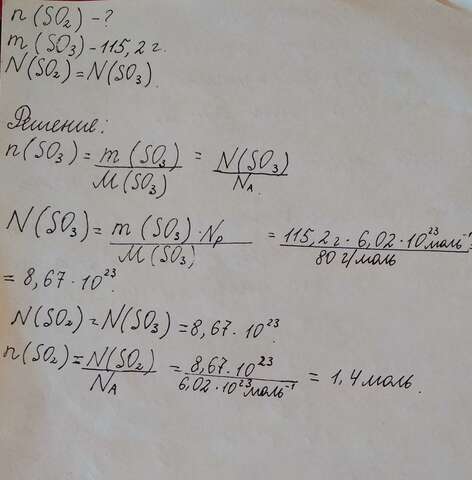 n(SO₂) - ?
m(SO₃) - 115,2 г.
N(SO₂) = N(SO₃)
Решение:
n(SO₃) = m(SO₃) / M(SO₃) = N(SO₃) / NA
N(SO₃) = m(SO₃)·Np / M(SO₃) = 115,2 г · 6,02·10²³ моль⁻¹ / 80 г/моль =
= 8,67·10²³.
N(SO₂) = N(SO₃) = 8,67·10²³.
n(SO₂) = N(SO₂) / NA = 8,67·10²³ / 6,02·10²³ моль⁻¹ = 1,4 моль.